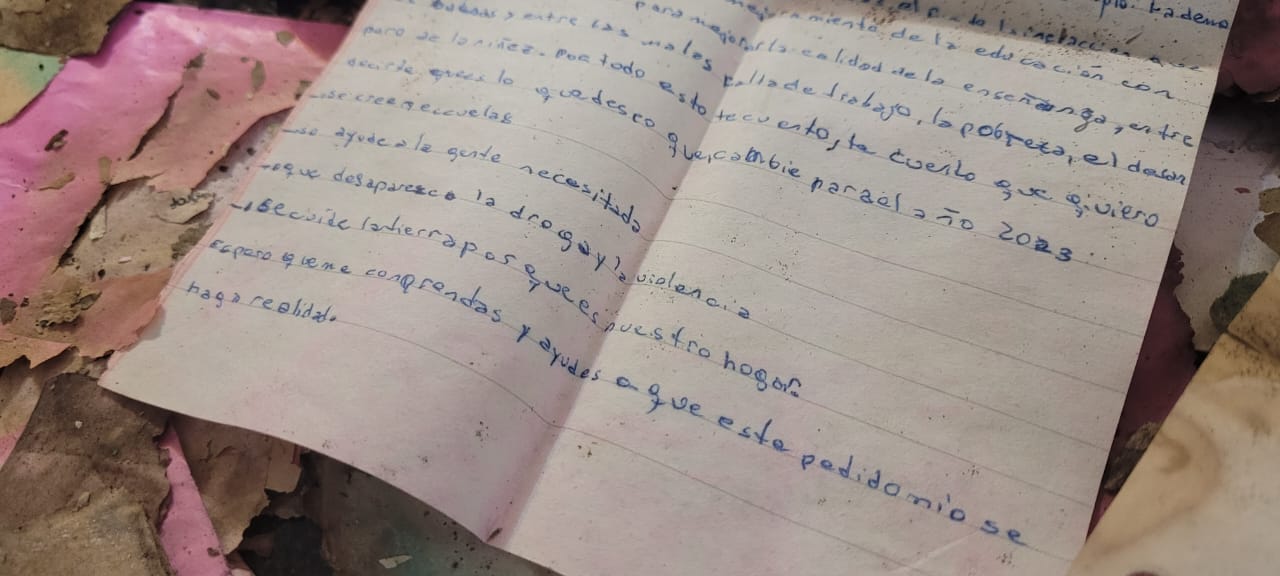 la demo
el la
mejoramiento de la educación con
para mejorar la calidad de la enseñanza, entre
y entre los males falla de trabajo, la pobreza, el desam
paro de la niñez. Por todo esto te cuento, te cuento que quiero
decirte que es lo que deseo que cambie para el año 2023.
-se cree escuelas
-se ayude a la gente necesitada
-que desaparezca la droga y la violencia
-se cuide la tierra por que es nuestro hogar.
Espero que me comprendas y ayudes a que este pedido mio se
haga realidad.